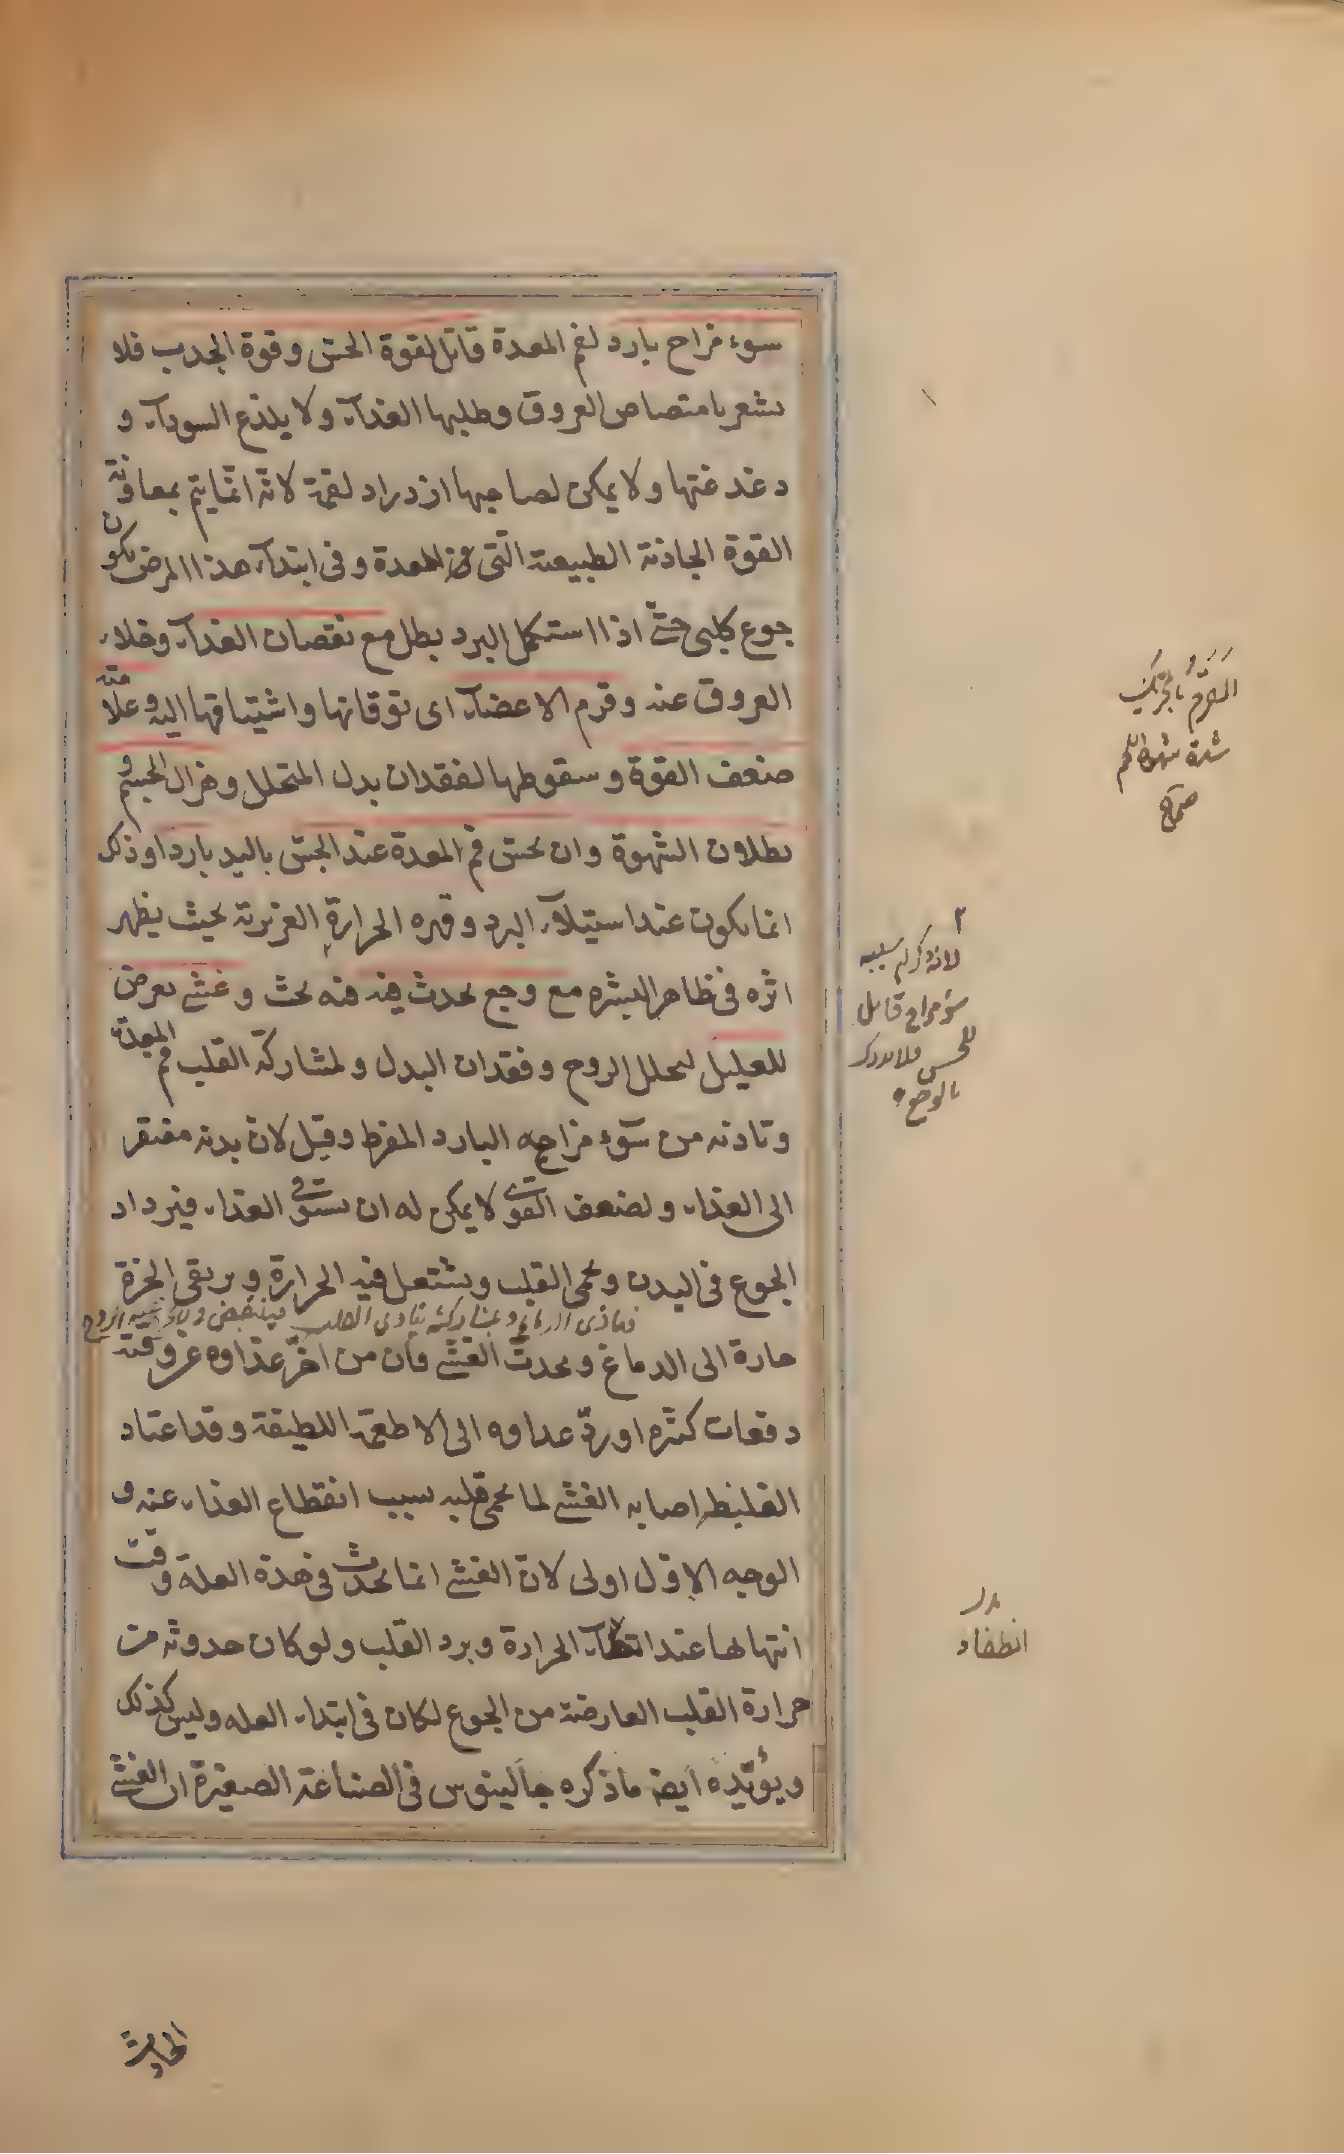 سوء مزاج بارد لفم المعدة قاتل لقوة الحس وقوة الجذب فلا
يشعر بامتصاص العروق وطلبها الغذآء ولا يلذع السودآء و
دغدغتها ولا يمكن لصاحبها ازدراد لقمة لانه انما يتم بمعاونة
القوة الجاذبة الطبيعية التى فى المعدة وفى ابتدآء هذا المرض يكون
جوع كلبى حتى اذا استكمل البرد بطل مع نقصان الغذآء وخلاء
العروق عنه وقرم الاعضآء اى توقانها واشتياقها اليه وعلامته
ضعف القوة وسقوطها لفقدان بدل المتحلل وهزال الجسم و
بطلان الشهوة وان يحس فم المعدة عند الجس باليد باردا وذلك
انما يكون عند استيلآء البرد وقهره الحرارة الغريزية بحيث يظهر
اثره فى ظاهر البشره مع وجع يحدث فيه بحث وغشى يعرض
للعليل لتحلل الروح وفقدان البدل ولمشاركة القلب فم المعدة
وتاذيه من سوء مزاجه البارد المفرط وقيل لان بدنه مفتقر
الى الغذاء ولضعف القوى لا يمكن له ان يستوفى الغذاء فيزداد
الجوع فى البدن ويحمى القلب ويشتعل فيه الحرارة ويرتقى ابخرة
فياذى الدماغ وبمشاركته يتاذى القلب فينقبض
حارة الى الدماغ ويحدث الغشى فان من اخر غذاوه عن وقته
دفعات كثيره او رد غداوه الى الاطعمة اللطيفة وقد اعتاد
الغليظ اصابه الغشى لما يحمى قلبه بسبب انقطاع الغذاء عنه و
الوجه الاول اولى لان الغشى انما يحدث فى هذة العلة وقت
انتهائها عند انتطفآء الحرارة وبرد القلب ولو كان حدوثه من
حرارة القلب العارضة من الجوع لكان فى ابتداء العله وليس كذلك
ويؤيده ايضا ما ذكره جالينوس فى الصناعة الصغيرة ان الغشى
القرم بالتحريك
شدة شهوة اللحم
صحاح
۲
لانه ذكر ان سببه
سوء مزاج قاتل
للحس فلا يدرك
بالوجع
بدل
انطفاء
الحادث